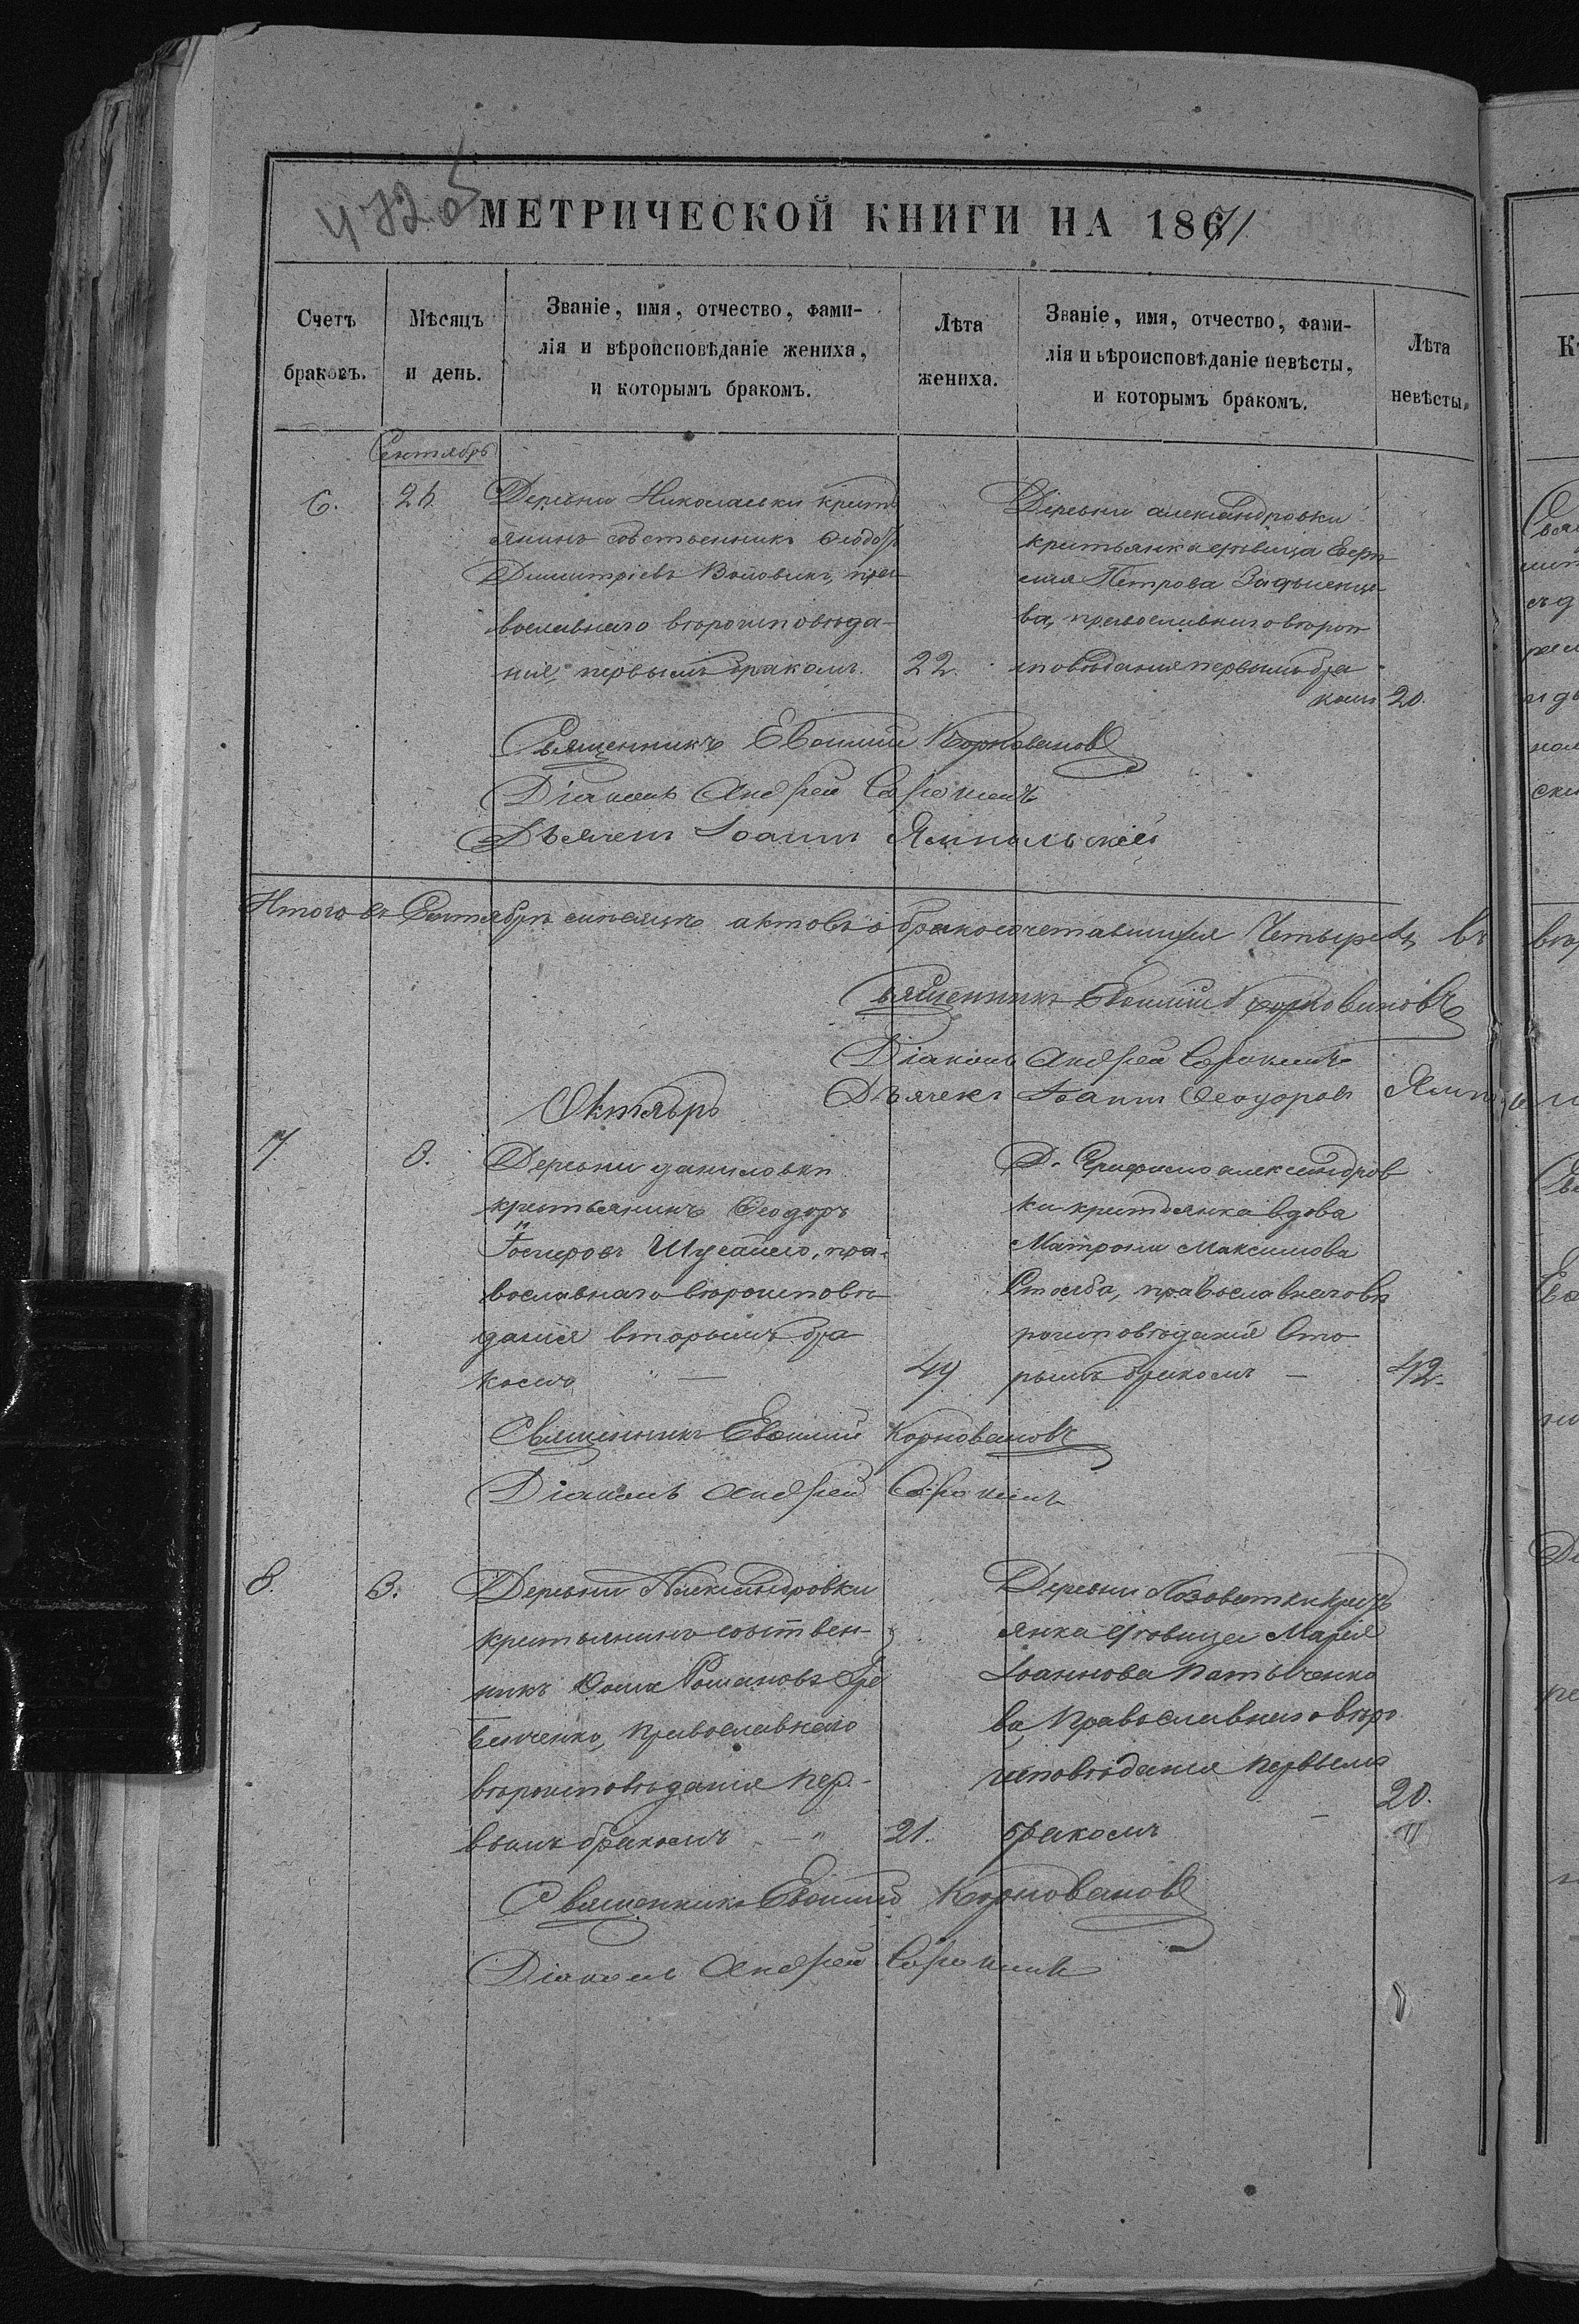 472 об
МЕТРИЧЕСКОЙ КНИГИ НА 1871
Счетъ браковъ.
Мѣсяцъ и день.
Званіе, имя, отчество, фами-
лія и вѣроисповѣданіе жениха,
и которымъ бракомъ.
Лѣта
жениха.
Званіе, имя, отчество, фами-
лія и вѣроисповѣданіе невѣсты,
и которымъ бракомъ.
Лѣта
невѣсты.
Сентябрь
6. 26.
Деревни Николаевки кресть
янинъ собственникъ Ѳеодоръ
Димитріевъ Воловикъ, пра
вославнаго вѣроисповѣда-
нія, первымъ бракомъ. 22.
Деревни александровки
крестьянка дѣвица
Петрова
ва, православнаго вѣрои
сповѣданія первымъ бра
комъ 20.
Священникъ Евѳимій Корновановъ
Діаконъ Андрей Сорокинъ
Дьячекъ Іоаннъ Ямпольскій
Итого въ Сентябрѣ мѣсяцѣ актовъ о бракосочетавшихся Четыре 4, въ
Священникъ Евѳимій Корновановъ
Діаконъ Андрей Сорокинъ
Дьячекъ Іоаннъ Ѳеодоровъ Ямп
Октябрь
7. 3.
Деревни даниловки
крестьянинъ Ѳеодоръ
пра-
вославнаго вѣроисповѣ
данія вторымъ бра
комъ — 49
Д. александров
ки крестьянка вдова
Матрона Максимова
православнаго вѣ
роисповѣданія вто
рымъ бракомъ — 42.
Священникъ Евѳимій Корновановъ
Діаконъ Андрей Сорокинъ
8. 3.
Деревни Александровки
крестьянинъ собствен-
никъ Ѳома Романовъ Гре
бенченко, православнаго
вѣроисповѣданія пер-
вымъ бракомъ — " 21.
Деревни Лозоватки крестъ
янка дѣвица Марія
Іоаннова
ва, Православнаго вѣро
исповѣданія первымъ
бракомъ — 20.
Священникъ Евѳимій Корновановъ
Діаконъ Андрей Сорокинъ